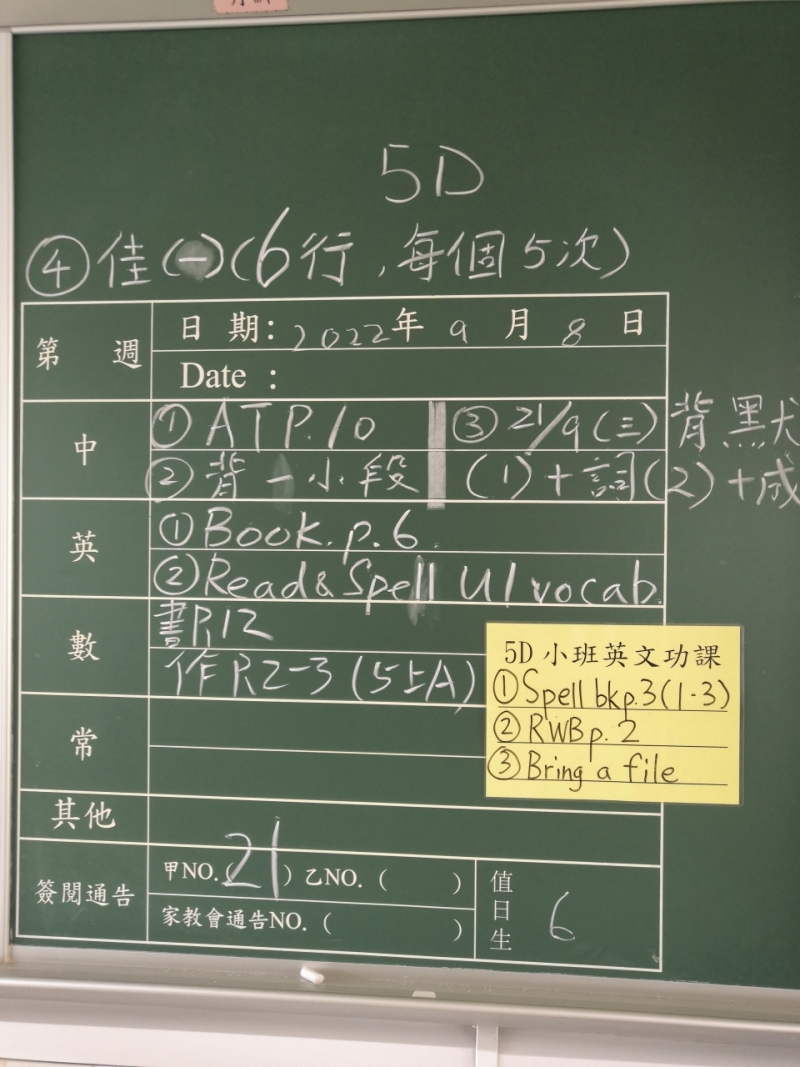 5D
④佳(一)(6行,每個5次)
第 週
日 期:2022年 9 月 8 日
Date :
中
①ATP.10 ③21/9(三)背默
②背一小段 (1)+詞(2)+成
英
①Book.p.6.
②Read&Spell U1 vocab.
數
書P.12
作P.2-3(5上A)
5D 小班英文功課
①Spell bkp.3(1-3)
②RWBp.2
③Bring a file
常
其他
簽閱通告
甲NO.(21)乙NO.( )
家教會通告NO.( )
值日生
6